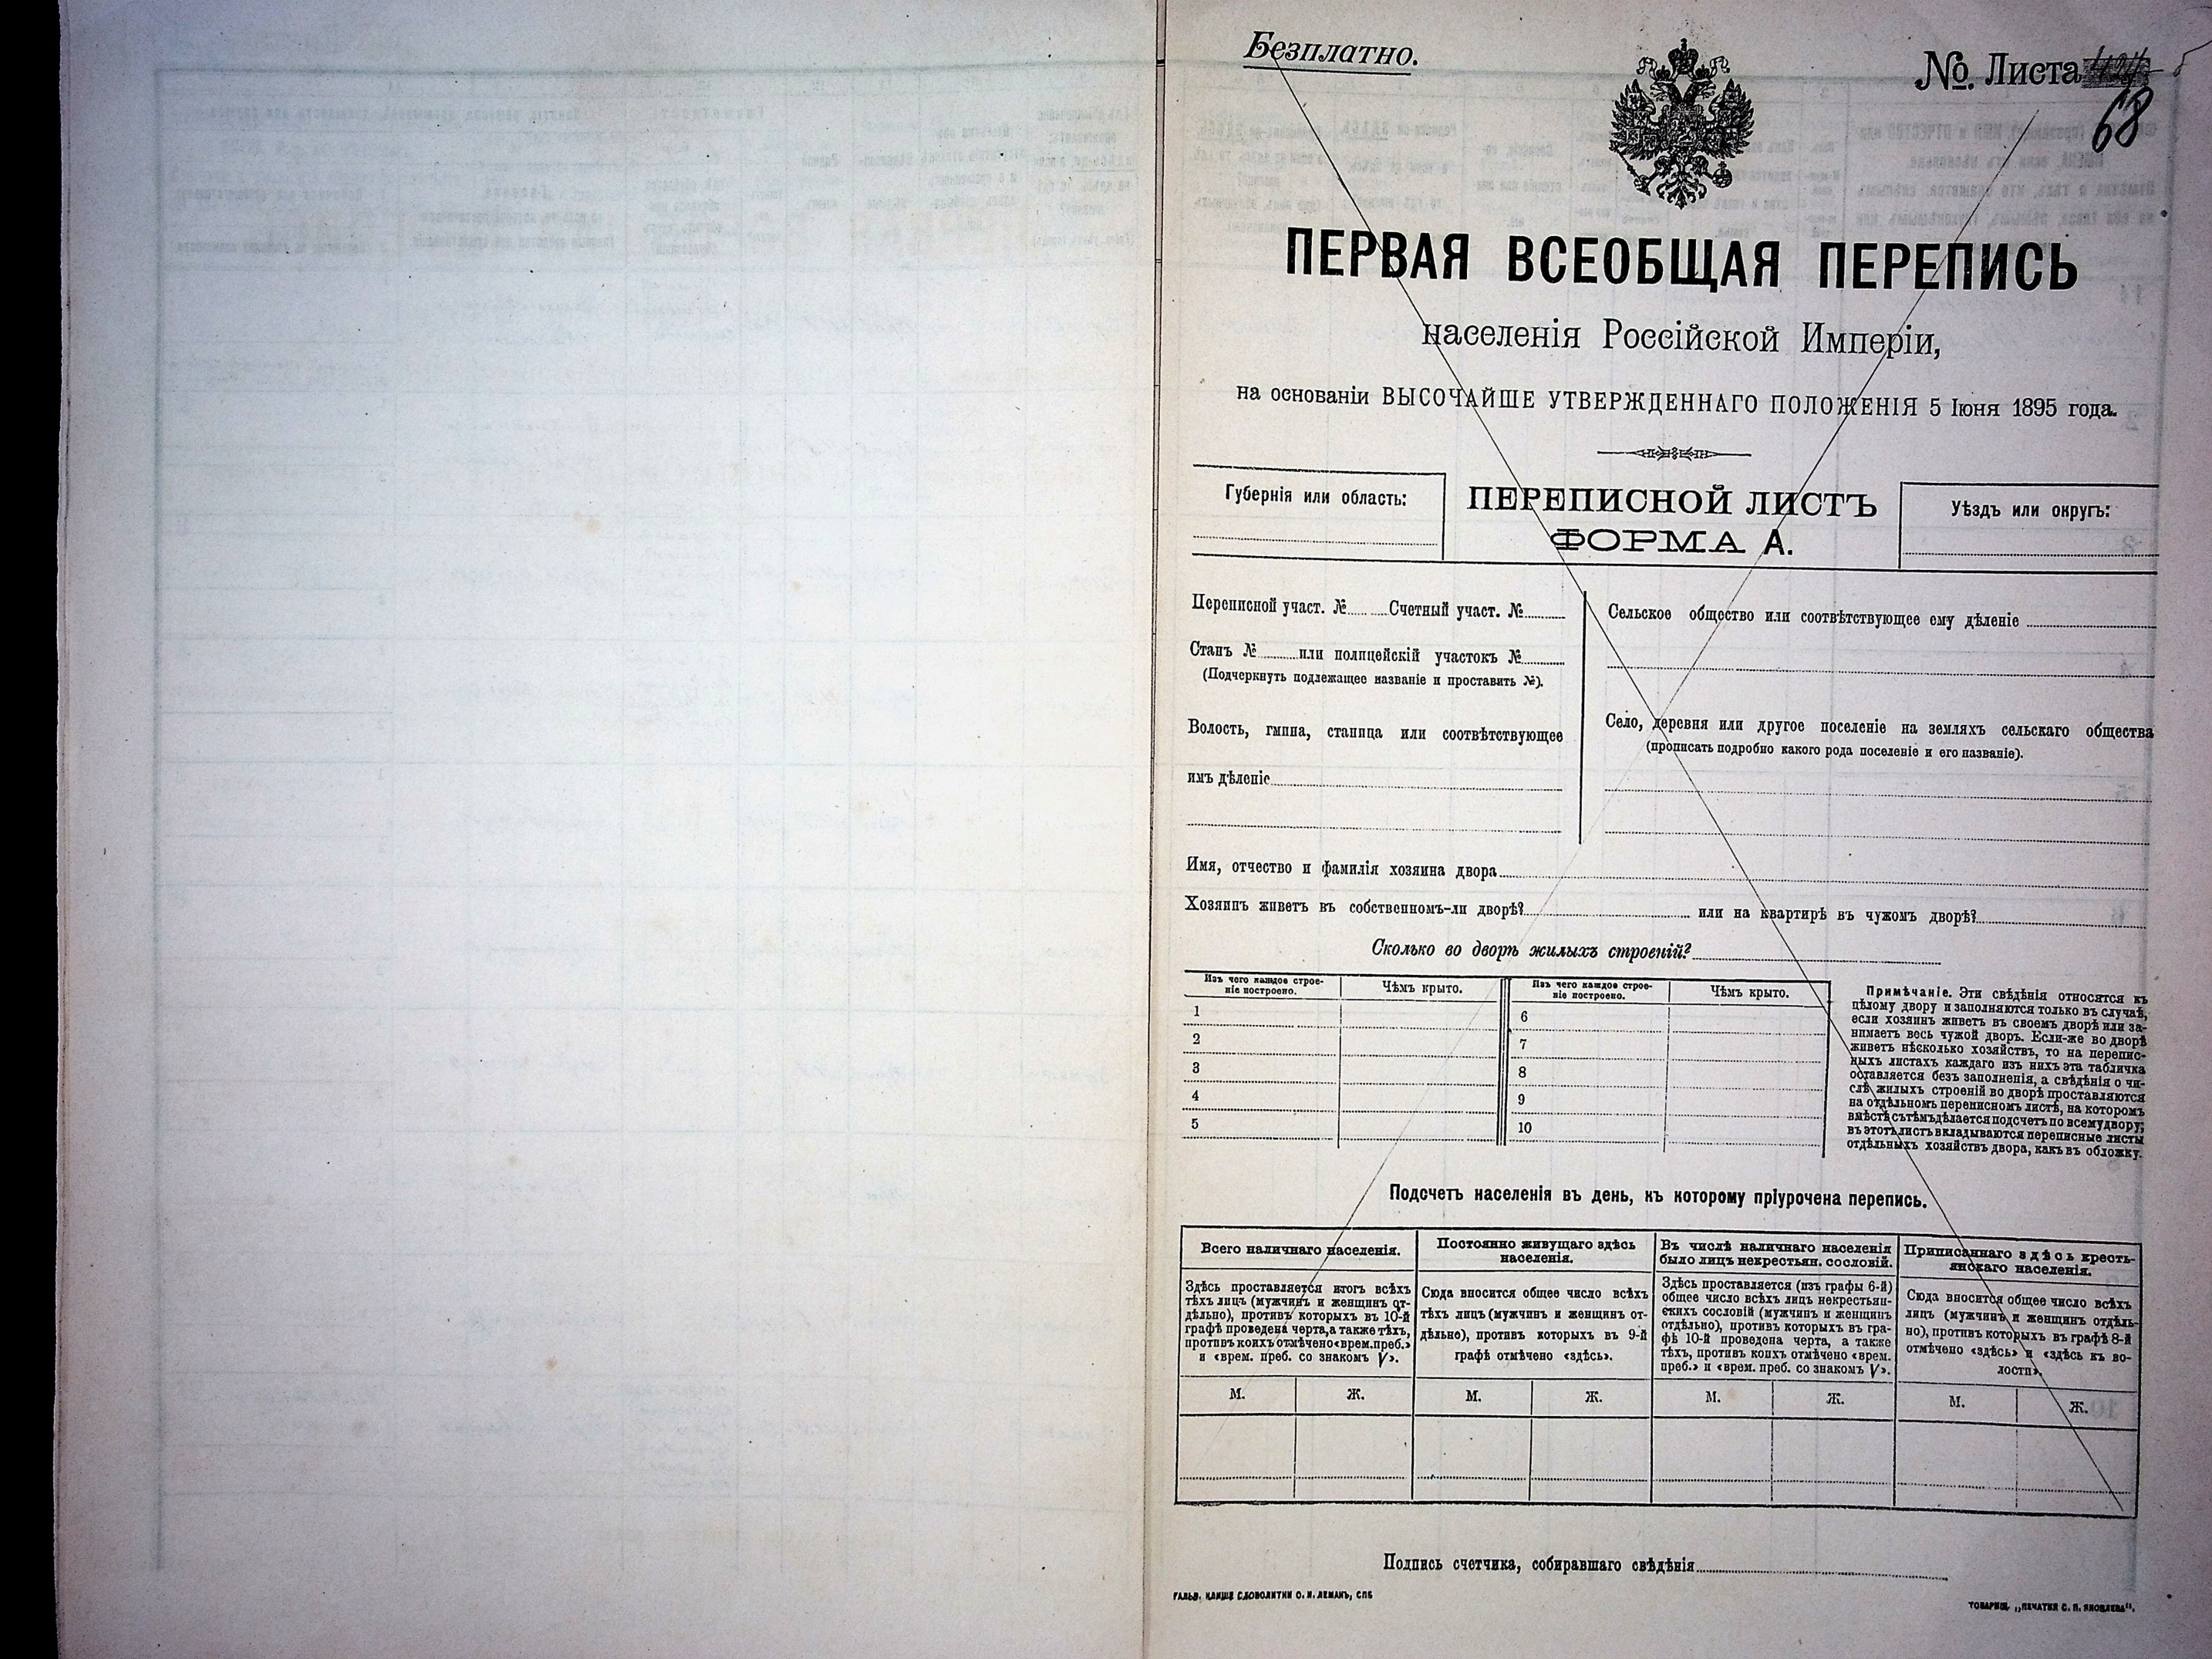 Безплатно.
№ Листа
68
ПЕРВАЯ ВСЕОБЩАЯ ПЕРЕПИСЬ
населенія Россійской Имперіи,
на основаніи ВЫСОЧАЙШЕ УТВЕРЖДЕННАГО ПОЛОЖЕНІЯ 5 Іюня 1895 года.
Губернія или область:
ПЕРЕПИСНОЙ ЛИСТЪ
ФОРМА А.
Уѣздъ или округъ:
Переписной участ. № Счетный участ. №
Станъ № или полицейскій участокъ №
(Подчеркнуть подлежащее названіе и проставить №).
Волость, гмина, станица или соотвѣтствующее
имъ дѣленіе
Сельское общество или соотвѣтствующее ему дѣленіе
Село, деревня или другое поселеніе на земляхъ сельскаго общества
(прописать подробно какого рода поселеніе и его названіе).
Имя, отчество и фамилія хозяина двора
Хозяинъ живетъ въ собственномъ-ли дворѣ? или на квартирѣ въ чужомъ дворѣ?
Сколько во дворѣ жилыхъ строеній?
Изъ чего каждое строе-
ніе построено.
Чѣмъ крыто.
Изъ чего каждое строе-
ніе построено.
Чѣмъ крыто.
1
2
3
4
5
6
7
8
9
10
Примѣчаніе. Эти свѣдѣнія относятся къ
цѣлому двору и заполняются только въ случаѣ,
если хозяинъ живетъ въ своемъ дворѣ или за-
нимаетъ весь чужой дворъ. Если-же во дворѣ
живетъ нѣсколько хозяйствъ, то на перепис-
ныхъ листахъ каждаго изъ нихъ эта табличка
оставляется безъ заполненія, а свѣдѣнія о чи-
слѣ жилыхъ строеній во дворѣ проставляются
на отдѣльномъ переписномъ листѣ, на которомъ
вмѣстѣ съ тѣмъ дѣлается подсчетъ по всему двору;
въ этотъ листъ вкладываются переписные листы
отдѣльныхъ хозяйствъ двора, какъ въ обложку.
Подсчетъ населенія въ день, къ которому пріурочена перепись.
Всего наличнаго населенія.
Здѣсь проставляется итогъ всѣхъ
тѣхъ лицъ (мужчинъ и женщинъ от-
дѣльно), противъ которыхъ въ 10-й
графѣ проведена черта, а также тѣхъ,
противъ коихъ отмѣчено «врем. преб.»
и «врем. преб. со знакомъ V».
М. Ж.
Постоянно живущаго здѣсь
населенія.
Сюда вносится общее число всѣхъ
тѣхъ лицъ (мужчинъ и женщинъ от-
дѣльно), противъ которыхъ въ 9-й
графѣ отмѣчено «здѣсь».
М. Ж.
Въ числѣ наличнаго населенія
было лицъ некрестьян. сословій.
Здѣсь проставляется (изъ графы 6-й)
общее число всѣхъ лицъ некрестьян-
скихъ сословій (мужчинъ и женщинъ
отдѣльно), противъ которыхъ въ гра-
фѣ 10-й проведена черта, а также
тѣхъ, противъ коихъ отмѣчено «врем.
преб.» и «врем. преб. со знакомъ V».
М. Ж.
Приписаннаго здѣсь кресть-
янскаго населенія.
Сюда вносится общее число всѣхъ
лицъ (мужчинъ и женщинъ отдѣль-
но), противъ которыхъ въ графѣ 8-й
отмѣчено «здѣсь» и «здѣсь къ во-
лости».
М. Ж.
Подпись счетчика, собиравшаго свѣдѣнія
ГАЛЬВ. КЛИШЕ СЛОВОЛИТНИ О. И. ЛЕМАНЪ, СПБ
ТОВАРИЩ. „ПЕЧАТНЯ С. П. ЯКОВЛЕВА".